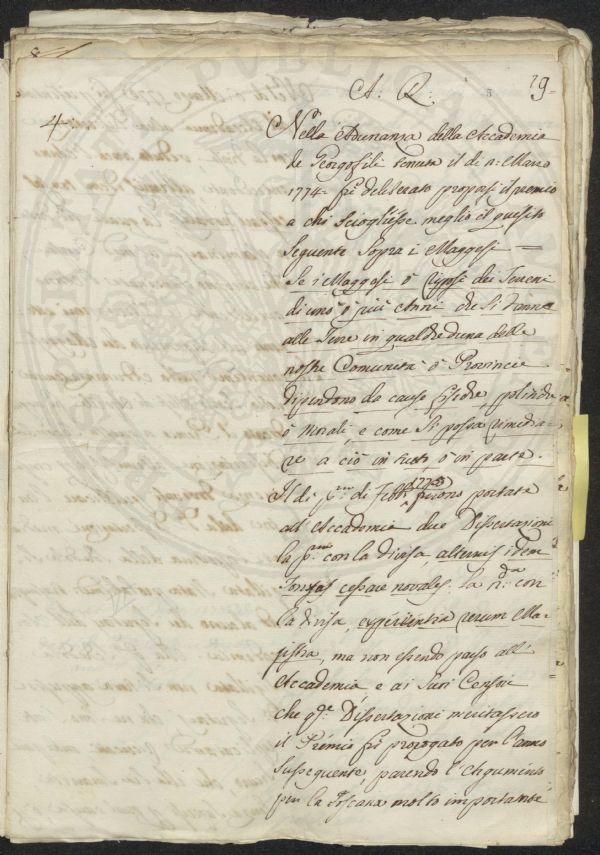 A. R.
19.
4
Nella Adunanza della Accademia
de Georgofili tenuta il di 2: Marzo
1774. fù deliberato proporsi il premio
a chi Sciogliesse meglio il quesito
Seguente Sopra i Maggesi =
Se i Maggesi ò riposi dei Terreni
di uno ò più Anni che Si danno
alle Terre in qualcheduna delle
nostre Comunità ò Provincie
dipendono da cause fisiche, politiche
ò Morali, e come Si possa rimedia-
re a ciò in tutto, ò in parte.
Il di p.mo di Febb. 1775 furono portate
all'Accademia due Dissertazioni
la p.ma con la divisa, alternis idem
Tonsas cessare novales. la 2.da con
la divisa, experientia rerum Ma-
gistra, ma non essendo parso all'
Accademia e ai Suoi Censori
che q.te Dissertazioni meritassero
il Premio fù prorogato per l'anno
Susseguente, parendo l'Argumento
per la Toscana molto importante
PUBLICA